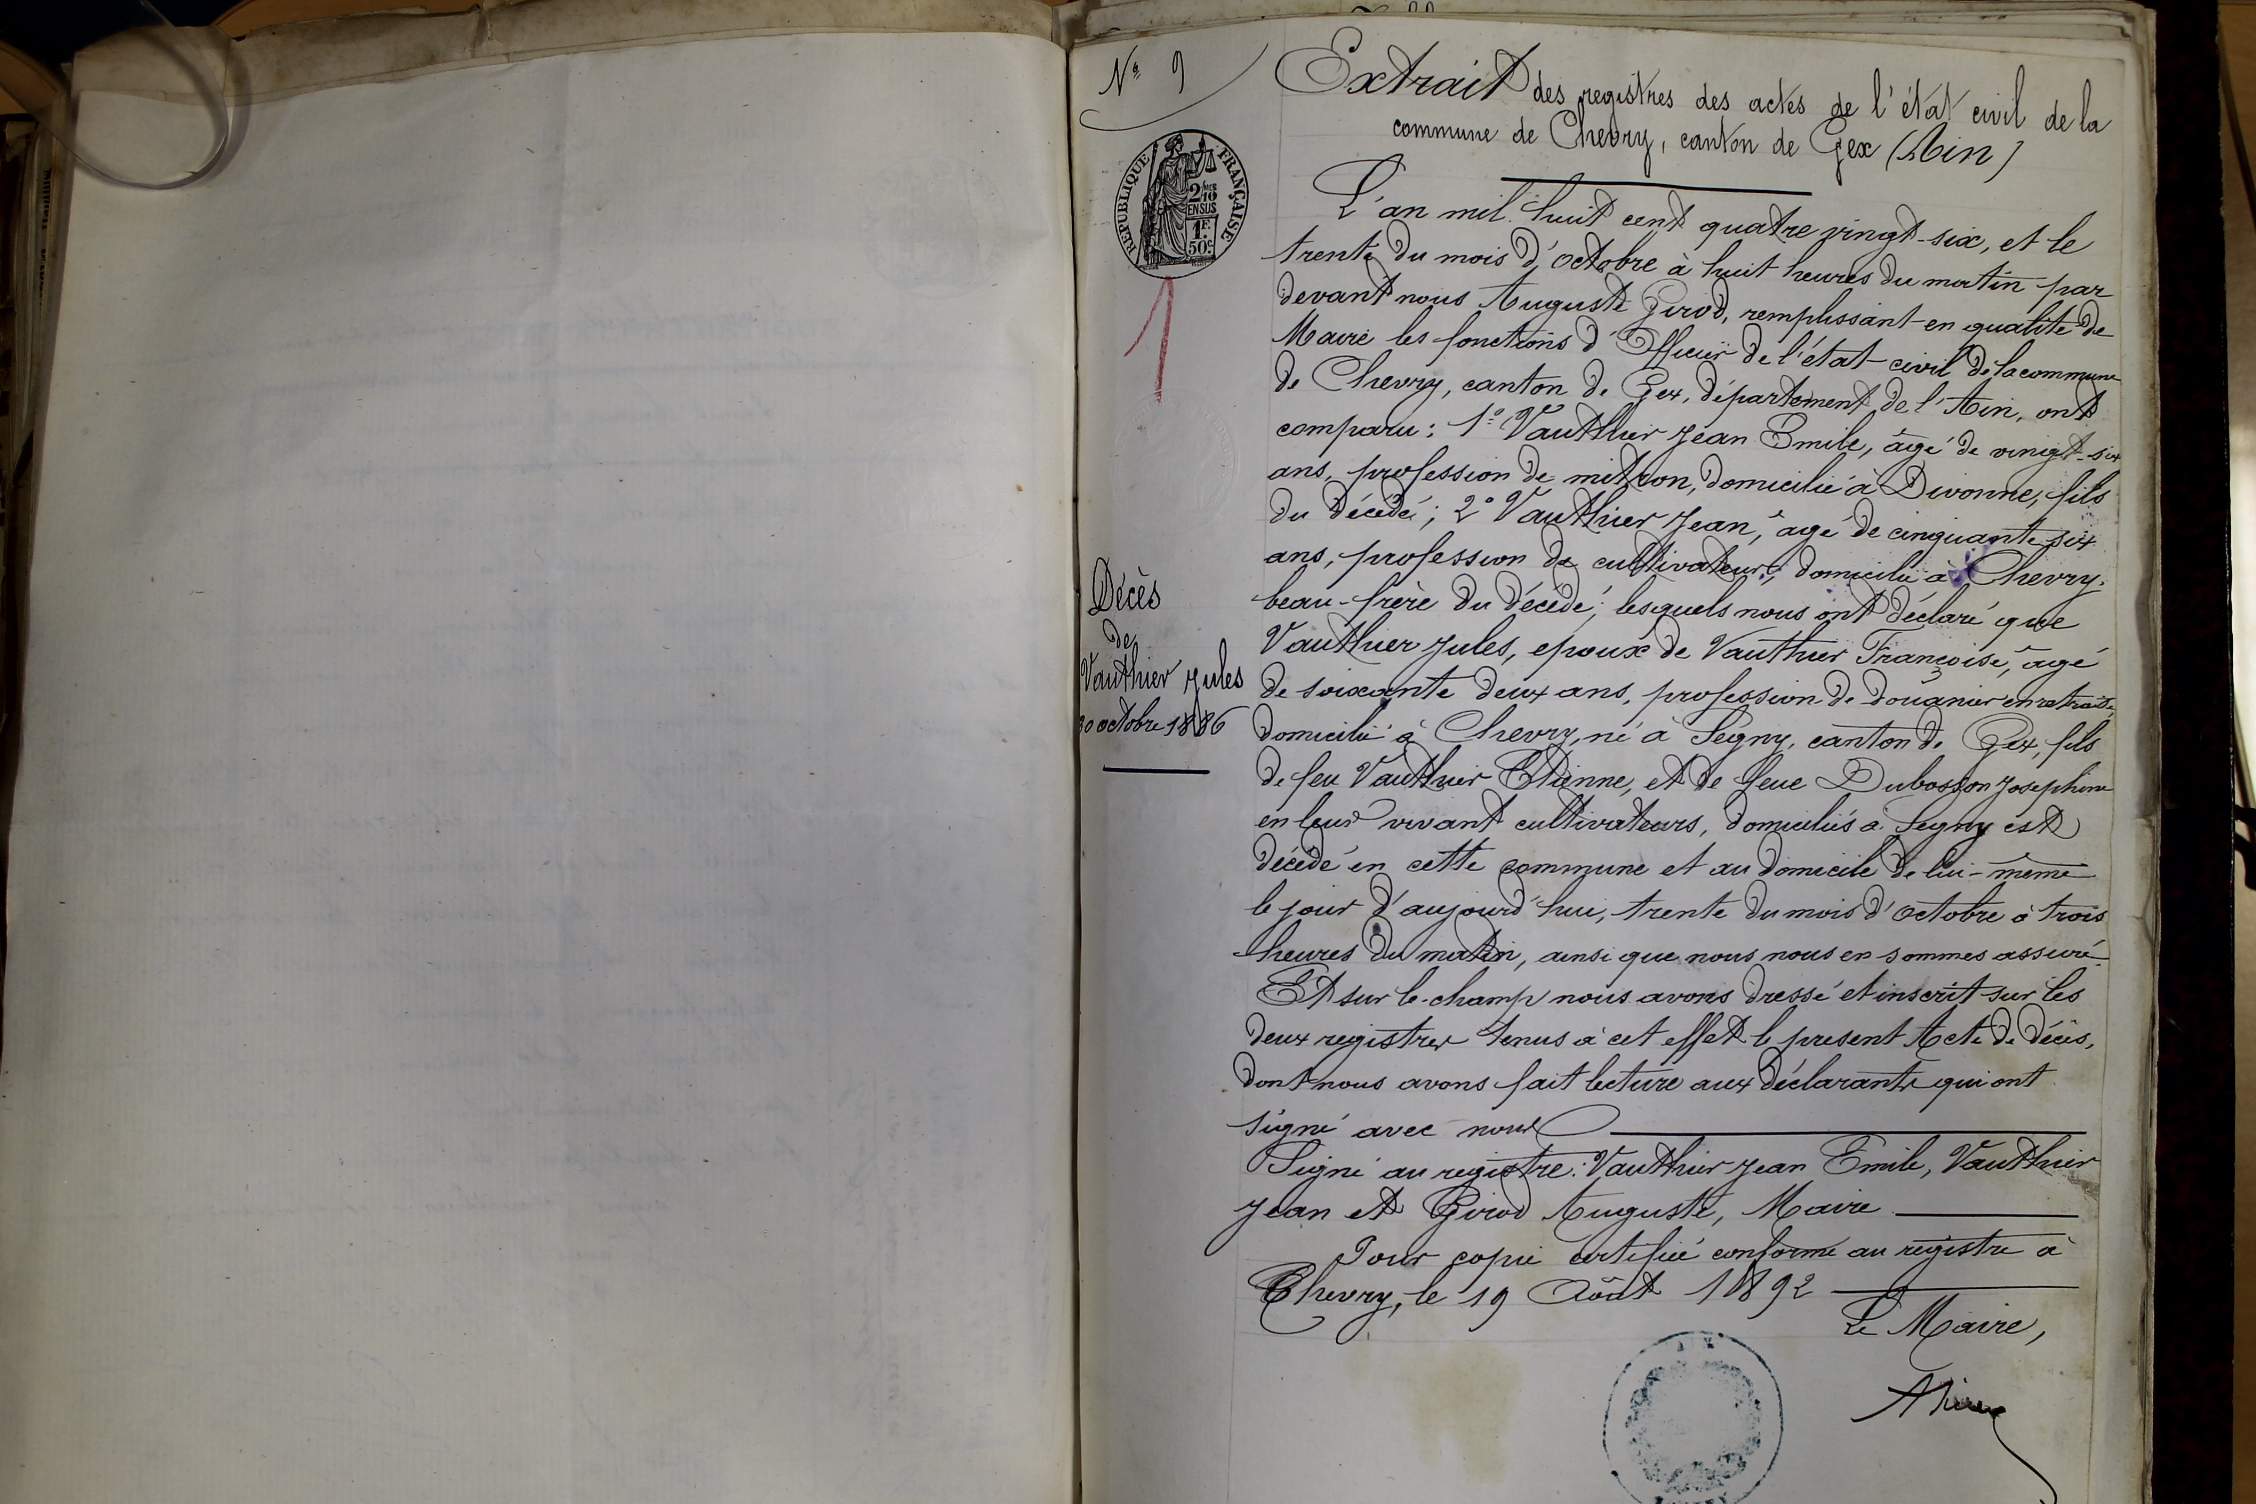 Nº 9
Extrait des registres des actes de l'état civil de la
commune de Chevry, canton de Gex (Ain)
REPUBLIQUE FRANÇAISE
2/10
EN SUS
1F.
50c.
L'an mil huit cent quatre vingt-six, et le
trente du mois d'octobre à huit heures du matin par
devant nous Auguste Girod, remplissant en qualité de
Maire les fonctions d'Officier de l'état-civil de la commune
de Chevry, canton de Gex, département de l'Ain, ont
comparu : 1º Vauthier Jean Emile, âgé de vingt-six
ans, profession de mitron, domicilié à Divonne, fils
du décédé ; 2º Vauthier Jean, âgé de cinquante-six
ans, profession de cultivateur, domicilié à Chevry.
beau-frère du décédé ; lesquels nous ont déclaré que
Vauthier Jules, epoux de Vauthier Françoise, âgé
de soixante deux ans, profession de douanier en retraite,
domicilié à Chevry, né à Segny, canton de Gex, fils
de feu Vauthier Etienne, et de feue Dubosson Josephine
en leur vivant cultivateurs, domiciliés à Segny est
décédé en cette commune et au domicile de lui-même
le jour d'aujourd'hui, trente du mois d'octobre à trois
heures du matin, ainsi que nous nous en sommes assuré.
Et sur le-champ nous avons dressé et inscrit sur les
deux registres tenus à cet effet le present Acte de décès,
dont nous avons fait lecture aux déclarants qui ont
signé avec nous
Signé au registre : Vauthier Jean Emile, Vauthier
Jean et Girod Auguste, Maire
Pour copie certifiée conforme au registre à
Chevry, le 19 Août 1892
Le Maire,
Décès
de
Vauthier Jules
30 octobre 1886